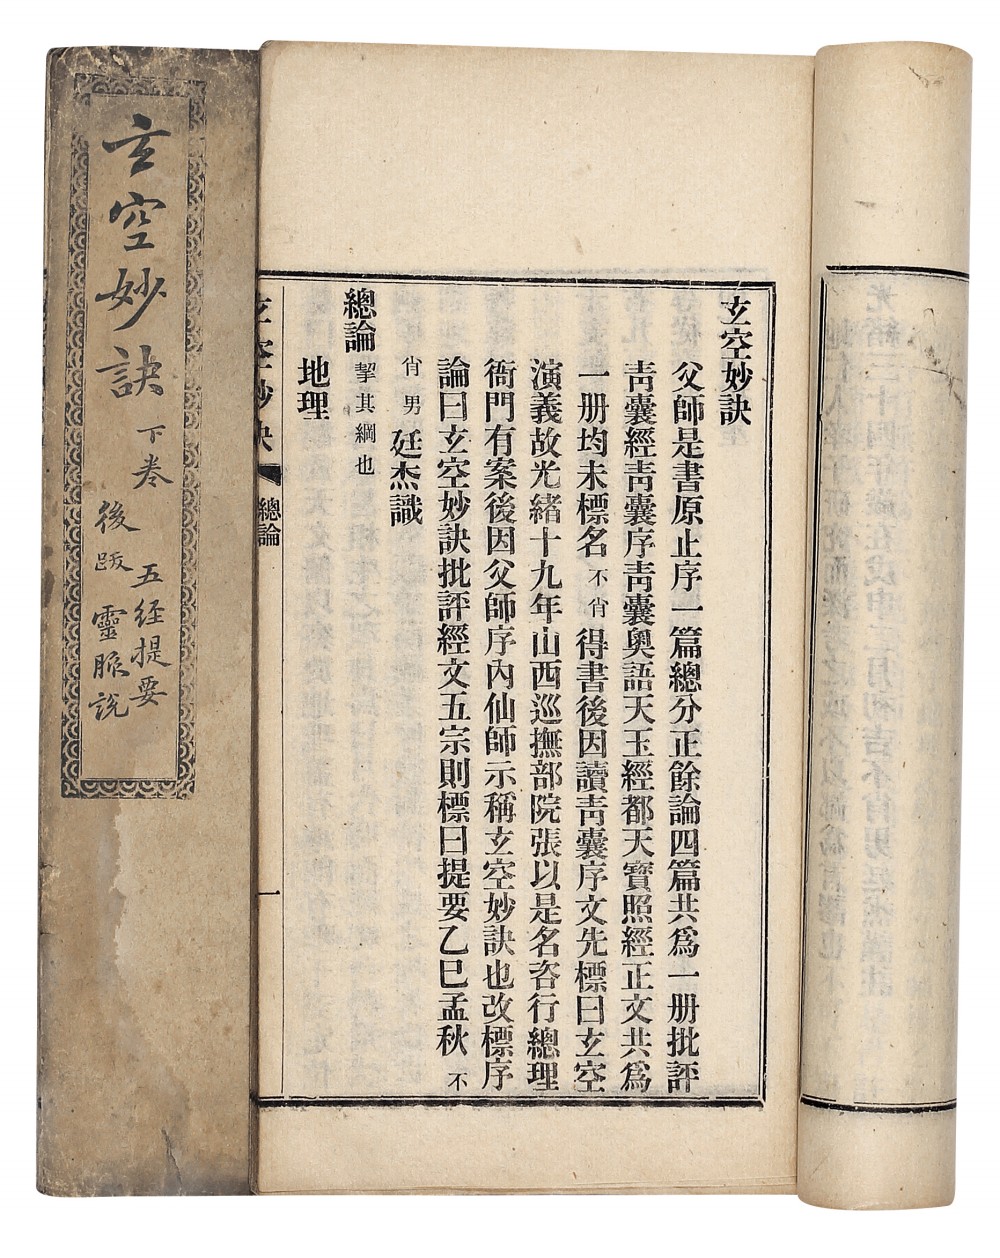 玄空妙訣
父師是書原止序一篇總分正餘論四篇共爲一册批評
靑囊經靑囊序靑囊奥語天玉經都天寶照經正文共爲
一册均未標名不肖得書後因讀靑囊序文先標曰玄空
演義故光緒十九年山西巡撫部院張以是名咨行總理
衙門有案後因父師序內仙師示稱玄空妙訣也改標序
論曰玄空妙訣批評經文五宗則標曰提要乙巳孟秋不
肖男廷杰識
總論挈其綱也
地理
玄空妙訣
總論
一
玄空妙訣
下卷
五经提要
後跋
靈脈說